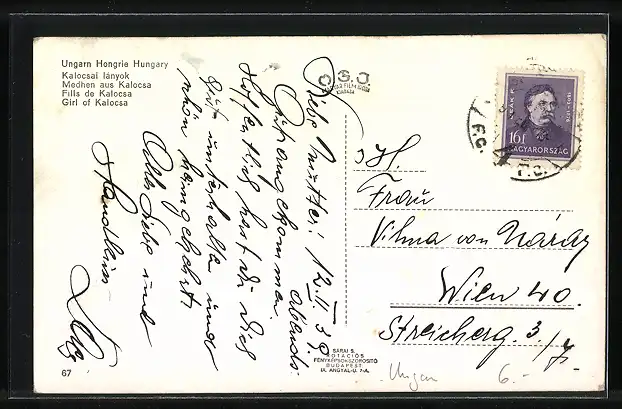 Ungarn Hongrie Hungary
Kalocsai lányok
Medhen aus Kalocsa
Fills de Kalocsa
Girl of Kalocsa
O.S.O
Liebe Mutter! 12.II.39
abends
Gut angekommen
Hoffentlich hast du dich
gut unterhalten und
schön heimgekehrt
Alles Liebe und
Handkuss
67
SÁRAI S.
ROTÁCIÓS
FÉNYKÉPSOKSZOROSÍTÓ
BUDAPEST
IX. ANGYAL-U.
DEÁK F.
16f
MAGYARORSZÁG
F.C.
F.C.
Frau
Vilma von Náray
Wien 40.
Streicherg. 3/7.
Ungarn 6.-